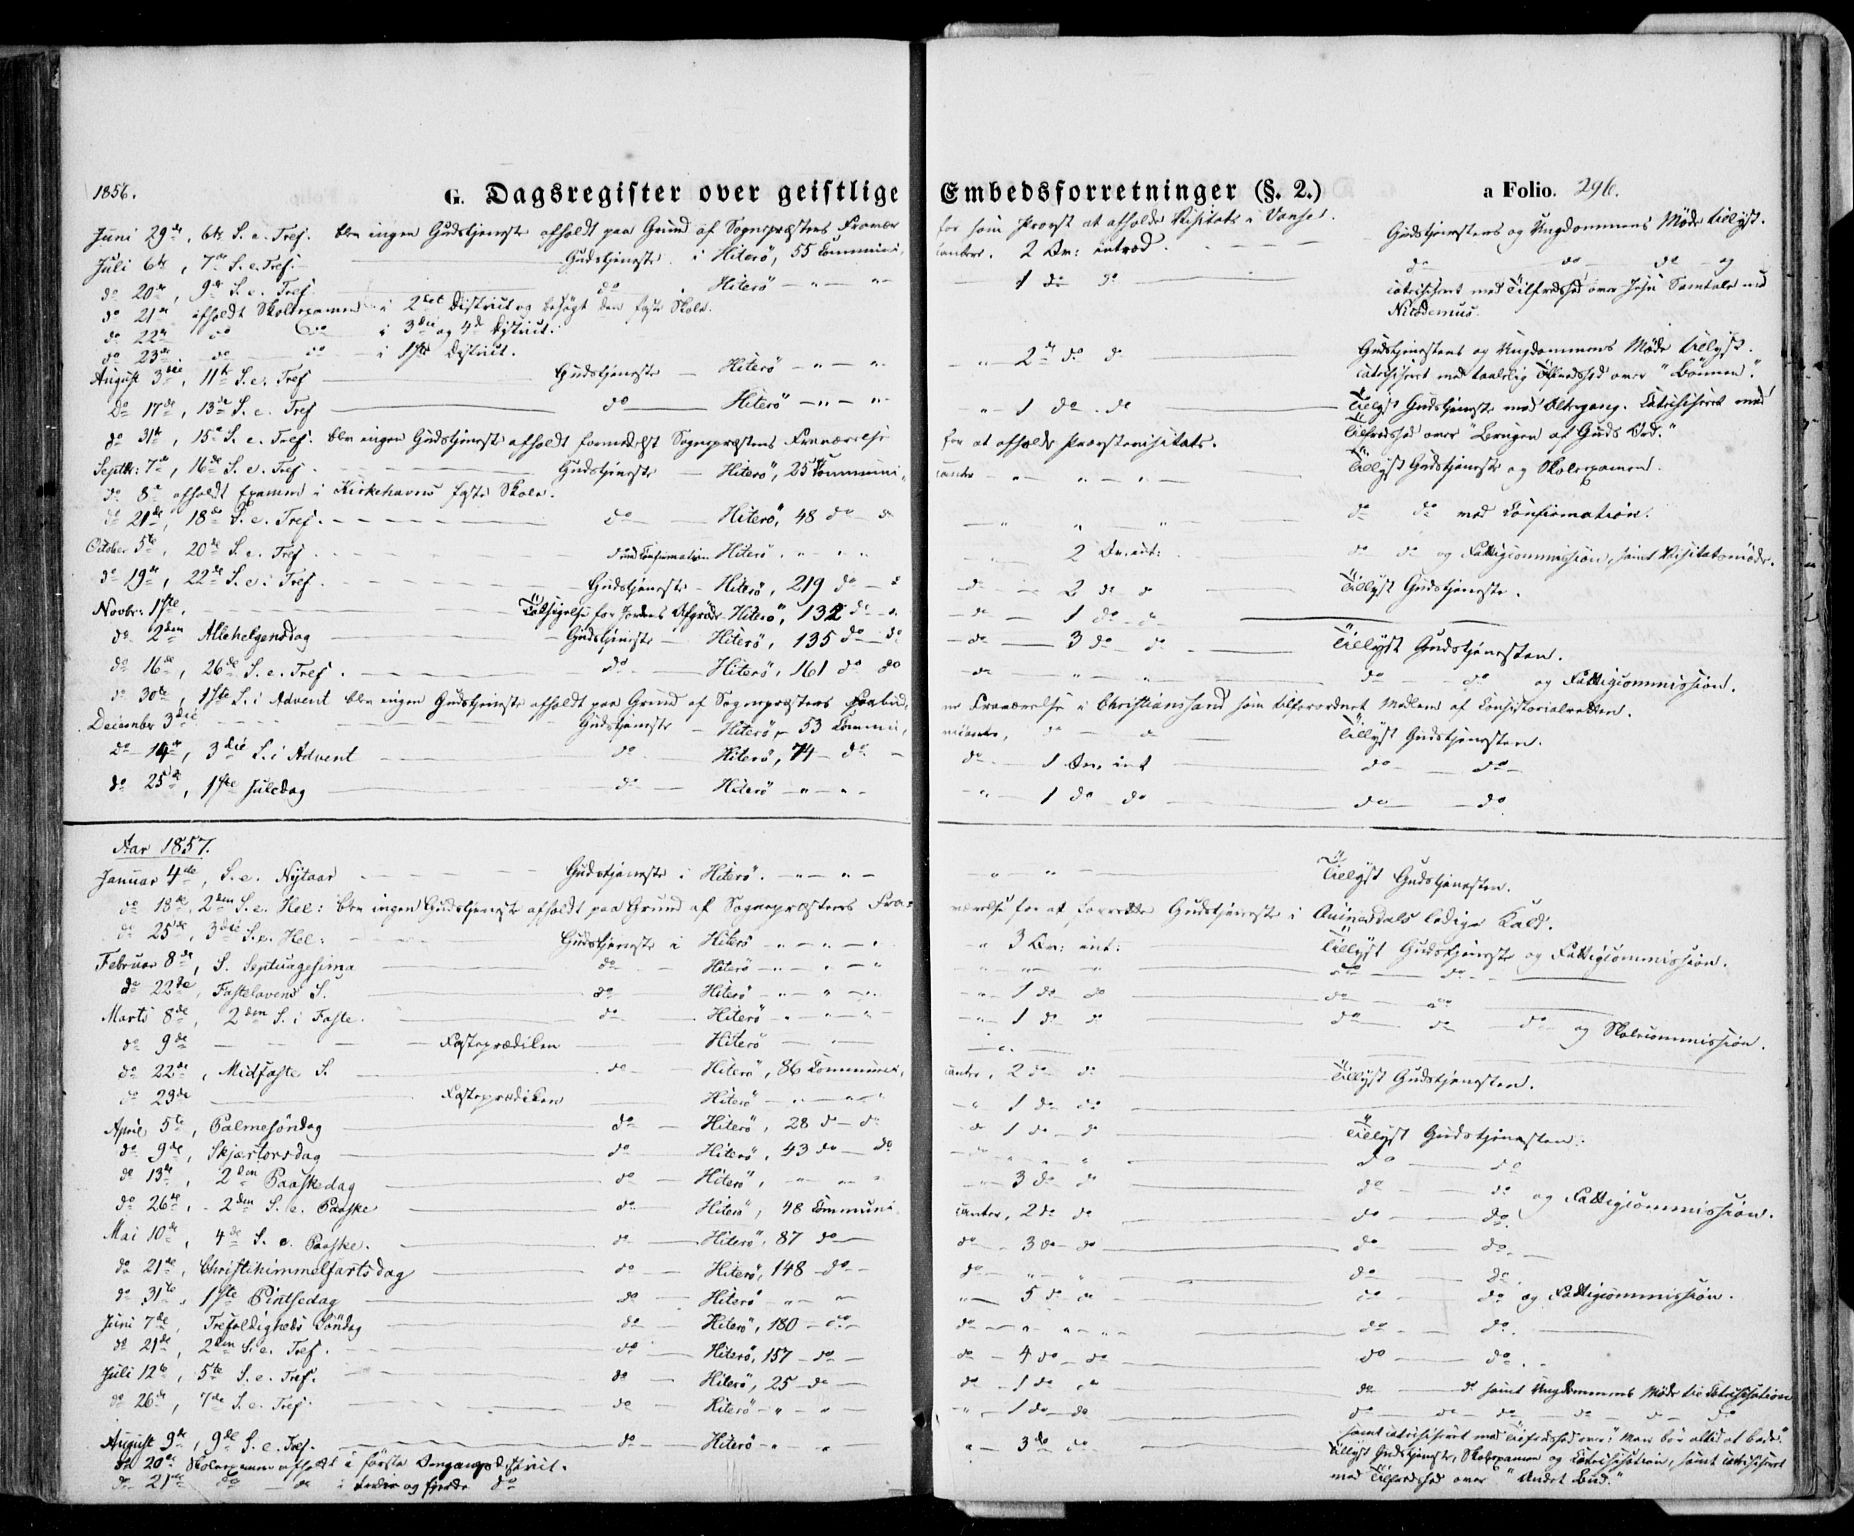 1856.
G. Dagsregister over geistlige Embedsforretninger (§. 2.) a Folio. 296.
Juni 29de, 6te S. e. Tref. blev ingen Gudstjeneste afholdt paa Grund af Sognepræstens Fravær for som Provst at afholde Visitats i Vanse. Gudstjenesten og Ungdommens Møde tillyst.
Juli 6te, 7de S. e. Tref. Gudstjeneste i Hiterö, 55 Communicantere. 2 Br: introd. do do do og
do 20de, 9de S. e. Tref. do Hiterö - " - " 1 do do catechiseret med Tilfredshed over Jesu Samtale med
do 21de afholdt Skoleexamen i 2det District og besøgt den faste Skole. Nicodemus.
do 22de do do i 3die og 4de District.
do 23de do do i 1ste District. Gudstjenesten og Ungdommens Møde tillyst.
August 3die, 11te S. e. Tref Gudstjeneste Hiterö - " - " 2de do do catechiseret med taalelig Tilfredshed over "Bönnen".
Do 17de, 13de S. e. Tref do Hiterö - " - " 1 do do Tillyst Gudstjeneste med Altergang. Catechiseret med
do 31te, 15de S. e. Tref. blev ingen Gudstjeneste afholdt formedelst Sognepræstens Fraværelse for at afholde Provstevisitats. Tilfredshed over "Brugen af Guds Ord."
Septbr: 7de, 16de S. e. Tref. Gudstjeneste Hiterö, 25 Communicanter - " - " Tillyst Gudstjeneste og Skoleexamen.
do 8de afholdt Examen i Kirkehavns faste Skole.
do 21de, 18de S. e. Tref. do Hiterö, 48 do do " " do do med Confirmation.
October 5te, 20de S. e. Tref. do med Confirmation Hiterö. " " 2 Br. int: do do og Fattigcommission, samt Visitatsmöde.
do 19de, 22de S. e. Tref. Gudstjeneste Hiterö, 219 do do 2 do do Tillyst Gudstjeneste.
Novbr: 1ste. Taksigelse for Jordens Afgröde Hiterö, 132 do do 1 do do
do 2den Allehelgensdag Gudstjeneste Hiterö, 135 do do do 3 do do Tillyst Gudstjenesten.
do 16de, 26de S. e. Tref. do Hiterö, 161 do do do " " do do og Fattigcommission.
do 30te, 1ste S. i Advent blev ingen Gudstjeneste afholdt paa Grund af Sognepræstens Fraværelse i Christianssand som tilforordnet Medlem af Consistorialretten.
December 3die Gudstjeneste Hiterö 53 Communicanter, do do Tillyst Gudstjenesten.
do 14de, 3die S. i Advent do Hiterö, 74 do do 1 Br. int do do
do 25de, 1ste Juledag do Hiterö - " - " 1 do do do do
Aar 1857.
Januar 4de, S. e. Nytaar Gudstjeneste i Hiterö. - " - " " " Tillyst Gudstjenesten.
do 18de, 2den S. e. Hel: blev ingen Gudstjeneste afholdt paa Grund af Sognepræstens Fraværelse for at forrette Gudstjeneste i Qvinesdals ledige Kald.
do 25de, 3die S. e. Hel: Gudstjeneste i Hiterö - " - " 3 Br: int: Tillyst Gudstjeneste og Fattigcommission.
Februar 8de, S. Septuagesima do Hiterö - " - " " " do do
do 22de, Fastelavens S. do Hiterö - " - " 1 do do do do
Marts 8de, 2den S. i Faste. do Hiterö - " - " 1 do do do do do og Skolecommission.
do 9de Fasteprædiken Hiterö
do 22de, Midfaste S. do Hiterö, 86 Communicanter, 2 do do Tillyst Gudstjenesten.
do 29de Fasteprædiken Hiterö - " - " 1 do do
April 5te, Palmesöndag do Hiterö, 28 do do do 1 do do Tillyst Gudstjenesten.
do 9de, Skjærtorsdag do Hiterö, 43 do do do " " do do
do 13de, 2den Paaskedag do Hiterö, - " - " 3 do do do do
do 26de, 2den S. e. Paaske do Hiterö, 48 Communicanter, 2 do do do do og Fattigcommission.
Mai 10de, 4de S. e. Paaske. do Hiterö, 87 do do 3 do do do do
do 21de, Christihimmelfartsdag do Hiterö, 148 do do " " do do
do 31te, 1ste Pintsedag do Hiterö - " - " 5 do do do do og Fattigcommission.
Juni 7de, Trefoldigheds Söndag do Hiterö, 180 do do " " do do
do 21de, 2den S. e. Tref. do Hiterö, 157 do do 4 do do do do
Juli 12te, 5te S. e. Tref. do Hiterö, 25 do do 1 do do do do samt Ungdommens Møde til Catechisation
do 26de, 7de S. e. Tref. do Hiterö - " - " 1 do do do do do do do do
August 9de, 9de S. e. Tref. do Hiterö - " - " 3 do do samt catechiseret med Tilfredshed over "Man bør altid at bede".
do 20de Skoleexamen afholdt i første Omgangsdistrict. Tillyst Gudstjeneste, Skoleexamen og Catechisation, samt catechiseret
do 21de do do i tredie og fjerde do med Tilfredshed over "Andet Bud."